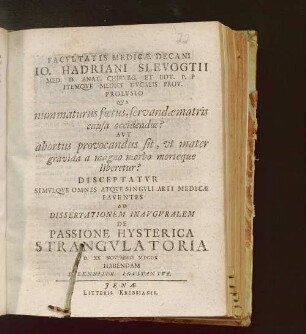 FACULTATIS MEDICÆ DECANI
IO. HADRIANI SLEVOGTII
MED. D. ANAT. CHIRURG. ET BOT. P. P.
ITEMQVE MEDICI DVCALIS PROV.
PROLVSIO
QVA
num maturus foetus, servandæ matris
causa occidendus?
AVT
abortus provocandus sit, vt mater
gravida a magno morbo morteque
liberetur?
DISCEPTATVR
SIMVLQVE OMNES ATQVE SINGVLI ARTI MEDICÆ
FAVENTES
AD
DISSERTATIONEM INAVGVRALEM
DE
PASSIONE HYSTERICA
STRANGVLATORIA
HABENDAM
SOLENNISSIME INVITANTVR.
JENÆ
LITTERIS KREBSIANIS.